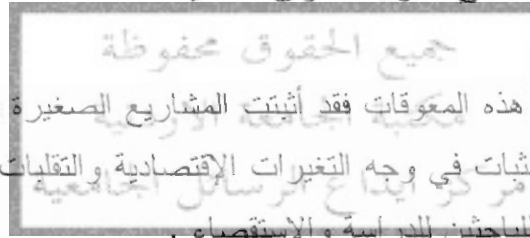 جميع الحقوق محفوظة
هذه المعوقات فقد أثبتت المشاريع الصغيرة
مكتبة الجامعة الأردنية
ثبات في وجه التغيرات الإقتصادية والتقلبات
مركز ايداع الرسائل الجامعية
الباحثين للدراسة والإستقصاء .